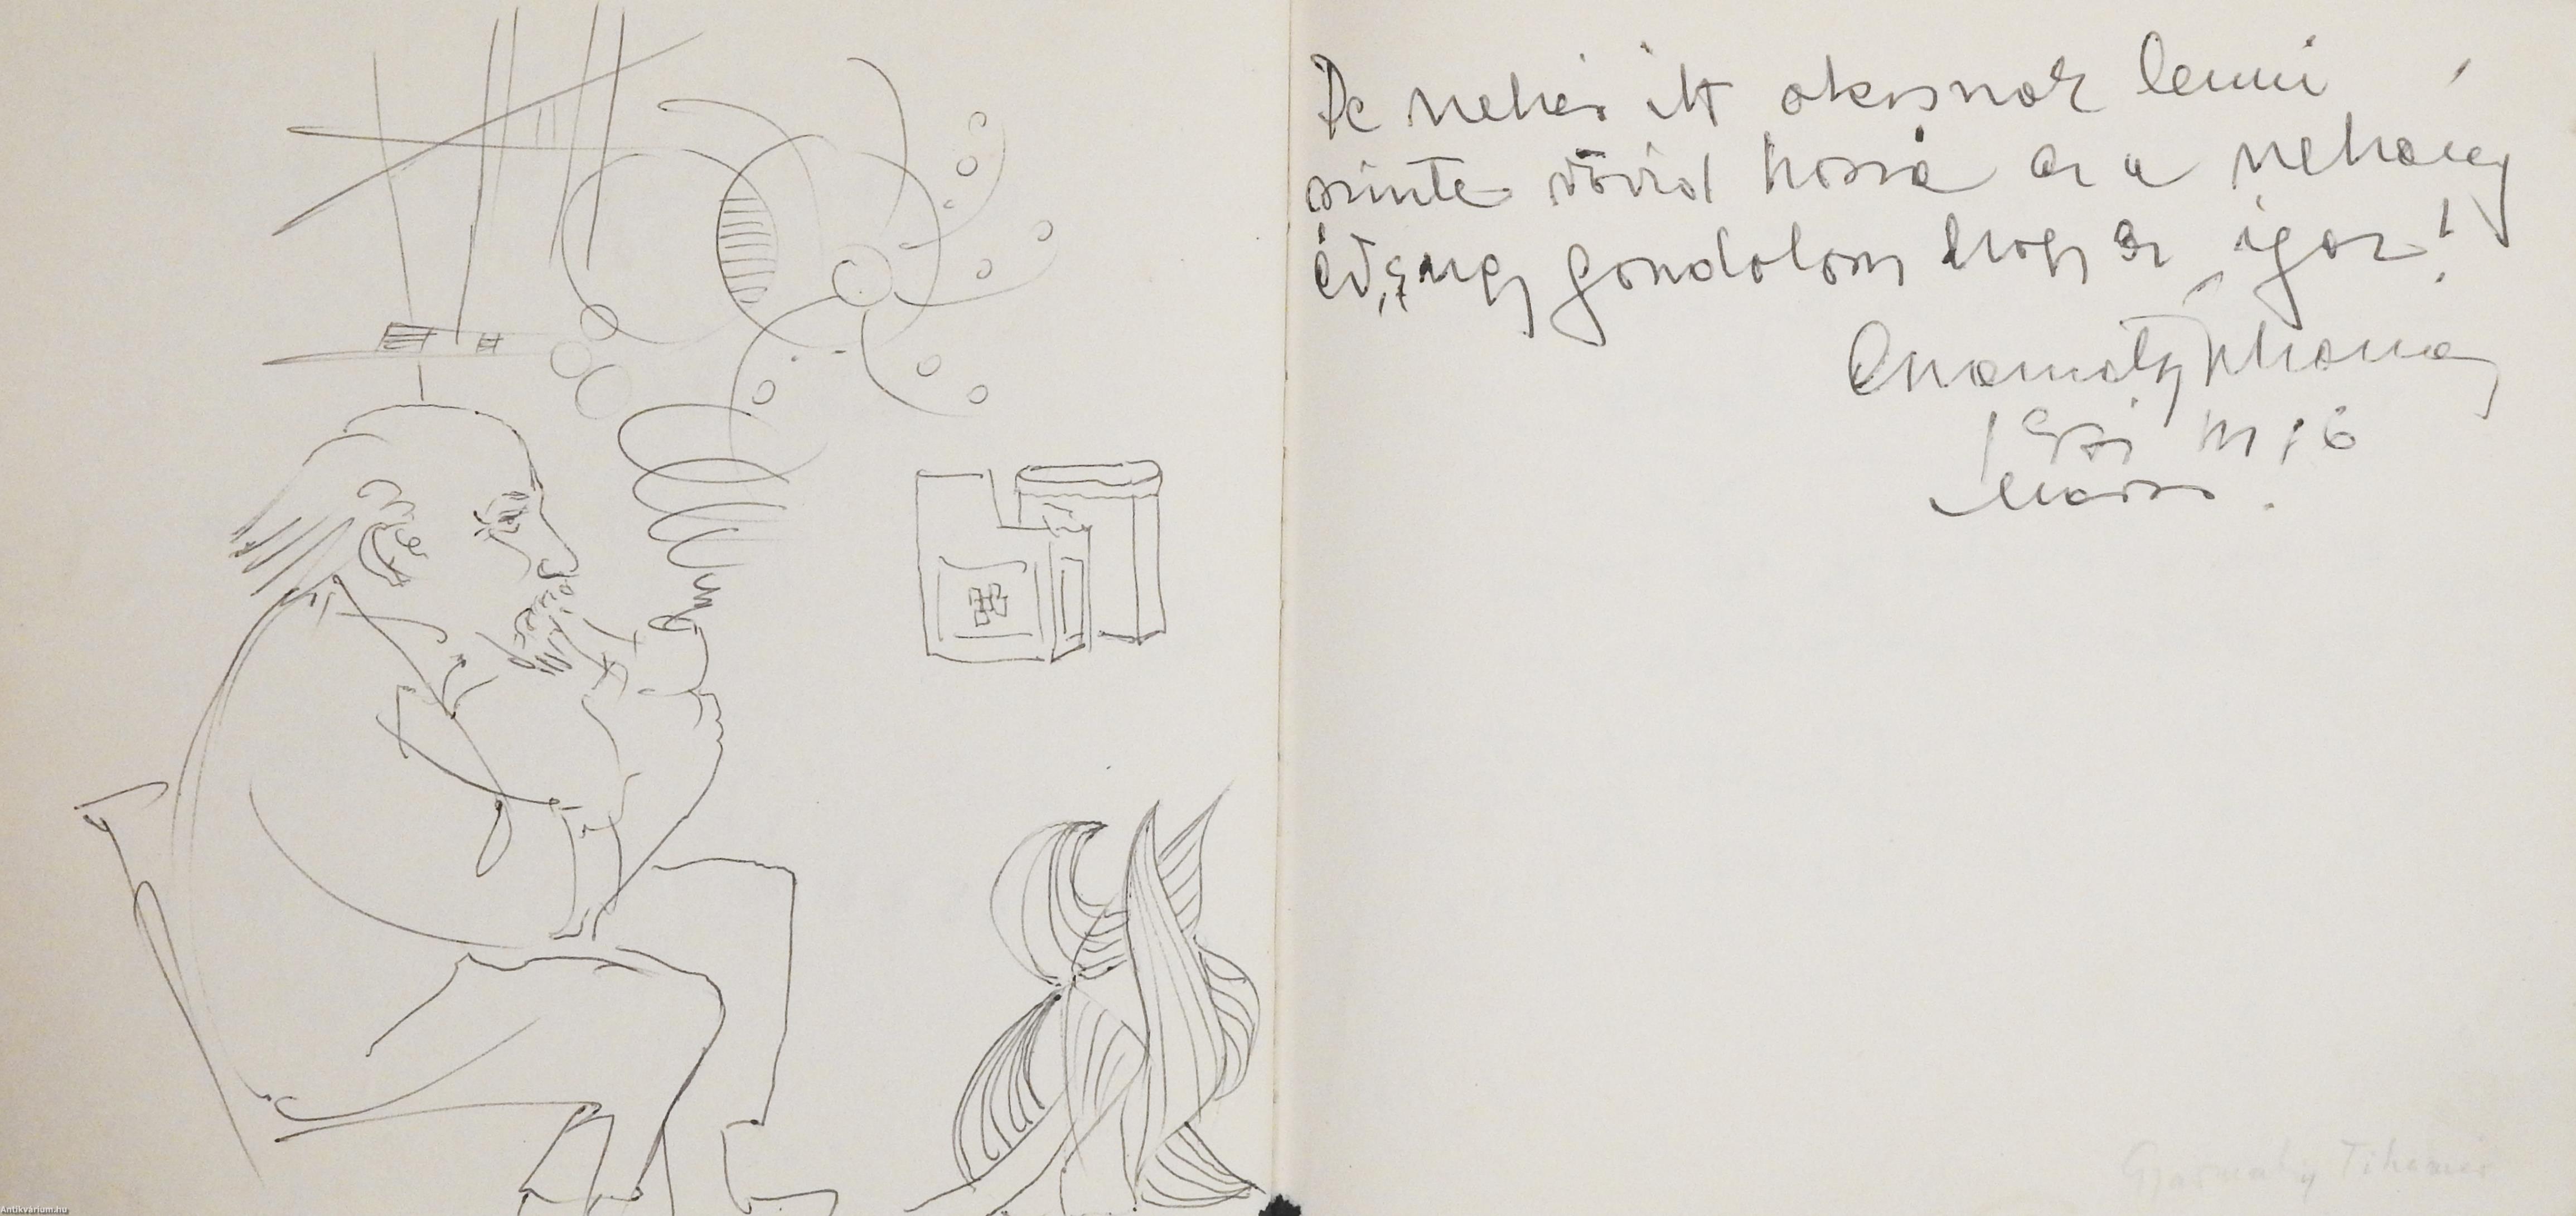 De nehéz itt okosnak lenni
szinte rövid hosszú az a néhány
év, úgy gondolom hogy ez igaz!
Gyarmathy Tihamér
1971 III 16
Gyarmathy Tihamér
Antikvarium.hu